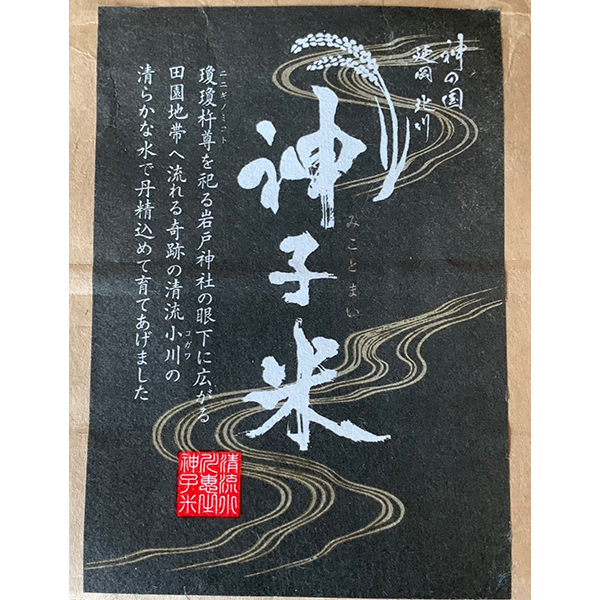 神の国
延岡 北川
神子米
みことまい
瓊瓊杵尊を祀る岩戸神社の眼下に広がる
ニニギノミコト
田園地帯へ流れる奇跡の清流小川の
コガワ
清らかな水で丹精込めて育てあげました
清流小
神子米